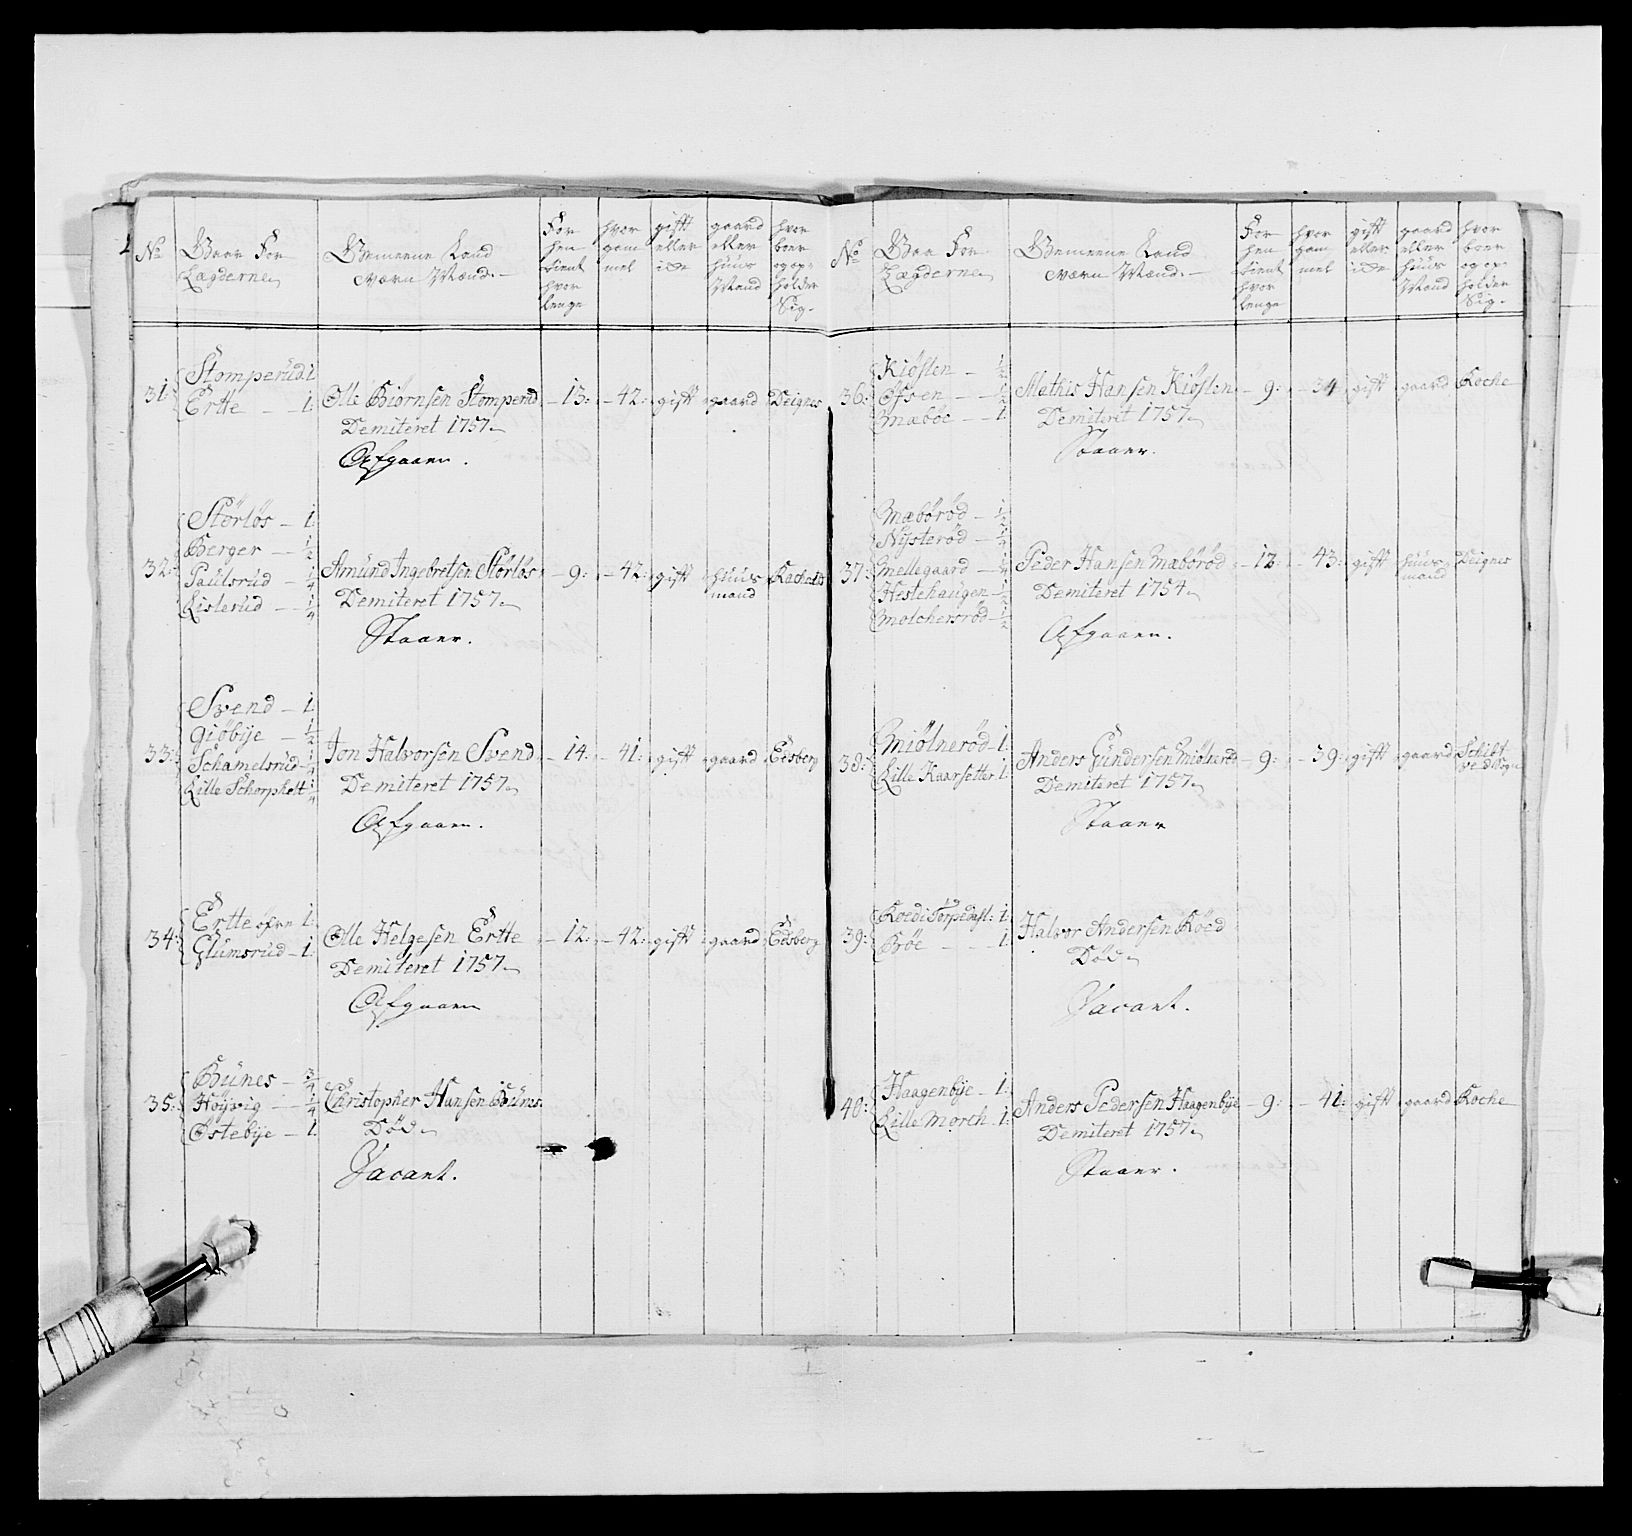 No
Gaar For
Lægderne
Gemeene Land
værn Mænd.
For
hen
tient
hvor
lenge
hvor
gam
mel
gift
eller
ide
gaard
eller
huus
Mand
hvor
boer
og op-
holder
Sig.
31:
Stomperud 1
Ertte - 1:
Olle Biørnsen Stomperud
Demiteret 1757.
Afgaaen.
- 13:
- 42:
gift
gaard
Deignes
32:
Störlös - 1
Berger - 1/2
Paulsrud - 1/4
Lislerud - 1/4
Amund Ingebretsen Störlös
Demiteret 1757.
Staaer.
- 9:
- 42:
gift
huus
mand
33:
Svend - 1
Giöbije - 1/2
Schamelsrud - 1/4
Lille Schorpholt 1/4
Jon Halvorsen Svend
Demiteret 1757.
Afgaaen.
- 14:
- 41:
gift
gaard
Edsberg
34:
Ertte øfre 1:
Glumsrud - 1:
Olle Helgesen Ertte
Demiteret 1757.
Afgaaen
- 12:
- 42:
gift
gaard
Edsberg
35:
Bünes - 3/4
Höyvig - 1/4
Østebije - 1
Christopher Hansen Bünes
Död.
Vacant.
No
Gaa For
Lægderne
Gemeene Land
værn Mænd.
For
hen
tient
hvor
lenge
hvor
gam
mel
gift
eller
ide
gaard
eller
huus
Mand
hvor
boer
og op-
holder
Sig.
36:
Kiøslen - 1/2
Ofsen - 1/2
Mæboe - 1
Mathis Hansen Kiøslen
Demiteret 1757.
Staaer.
- 9:
- 34
gift
gaard
Roche
37:
Mæbôrôd - 1/2
Nysterôd - 1/2
Mellegaard - 1/2
Hestehaugen - 1/2
Molchersrôd - 1/2
Peder Hansen Mæbôrôd
Demiteret 1754.
Afgaaen.
- 12:
- 43:
gift
huus
mand
Deignes
38:
Miölneröd - 1:
Lille Kaarsetter 1:
Anders Gundersen Miölneröd
Demiteret 1757.
Staaer
- 9:
- 39:
gift
gaard
39:
1:
Böe - 1:
Halvor Andersen Köed
Död.
Vacant.
40:
Haagenbije - 1:
Lille Morch. 1:
Anders Pedersen Haagenbije
Demiteret 1757.
Staaer.
- 9:
- 41:
gift
gaard
Roche